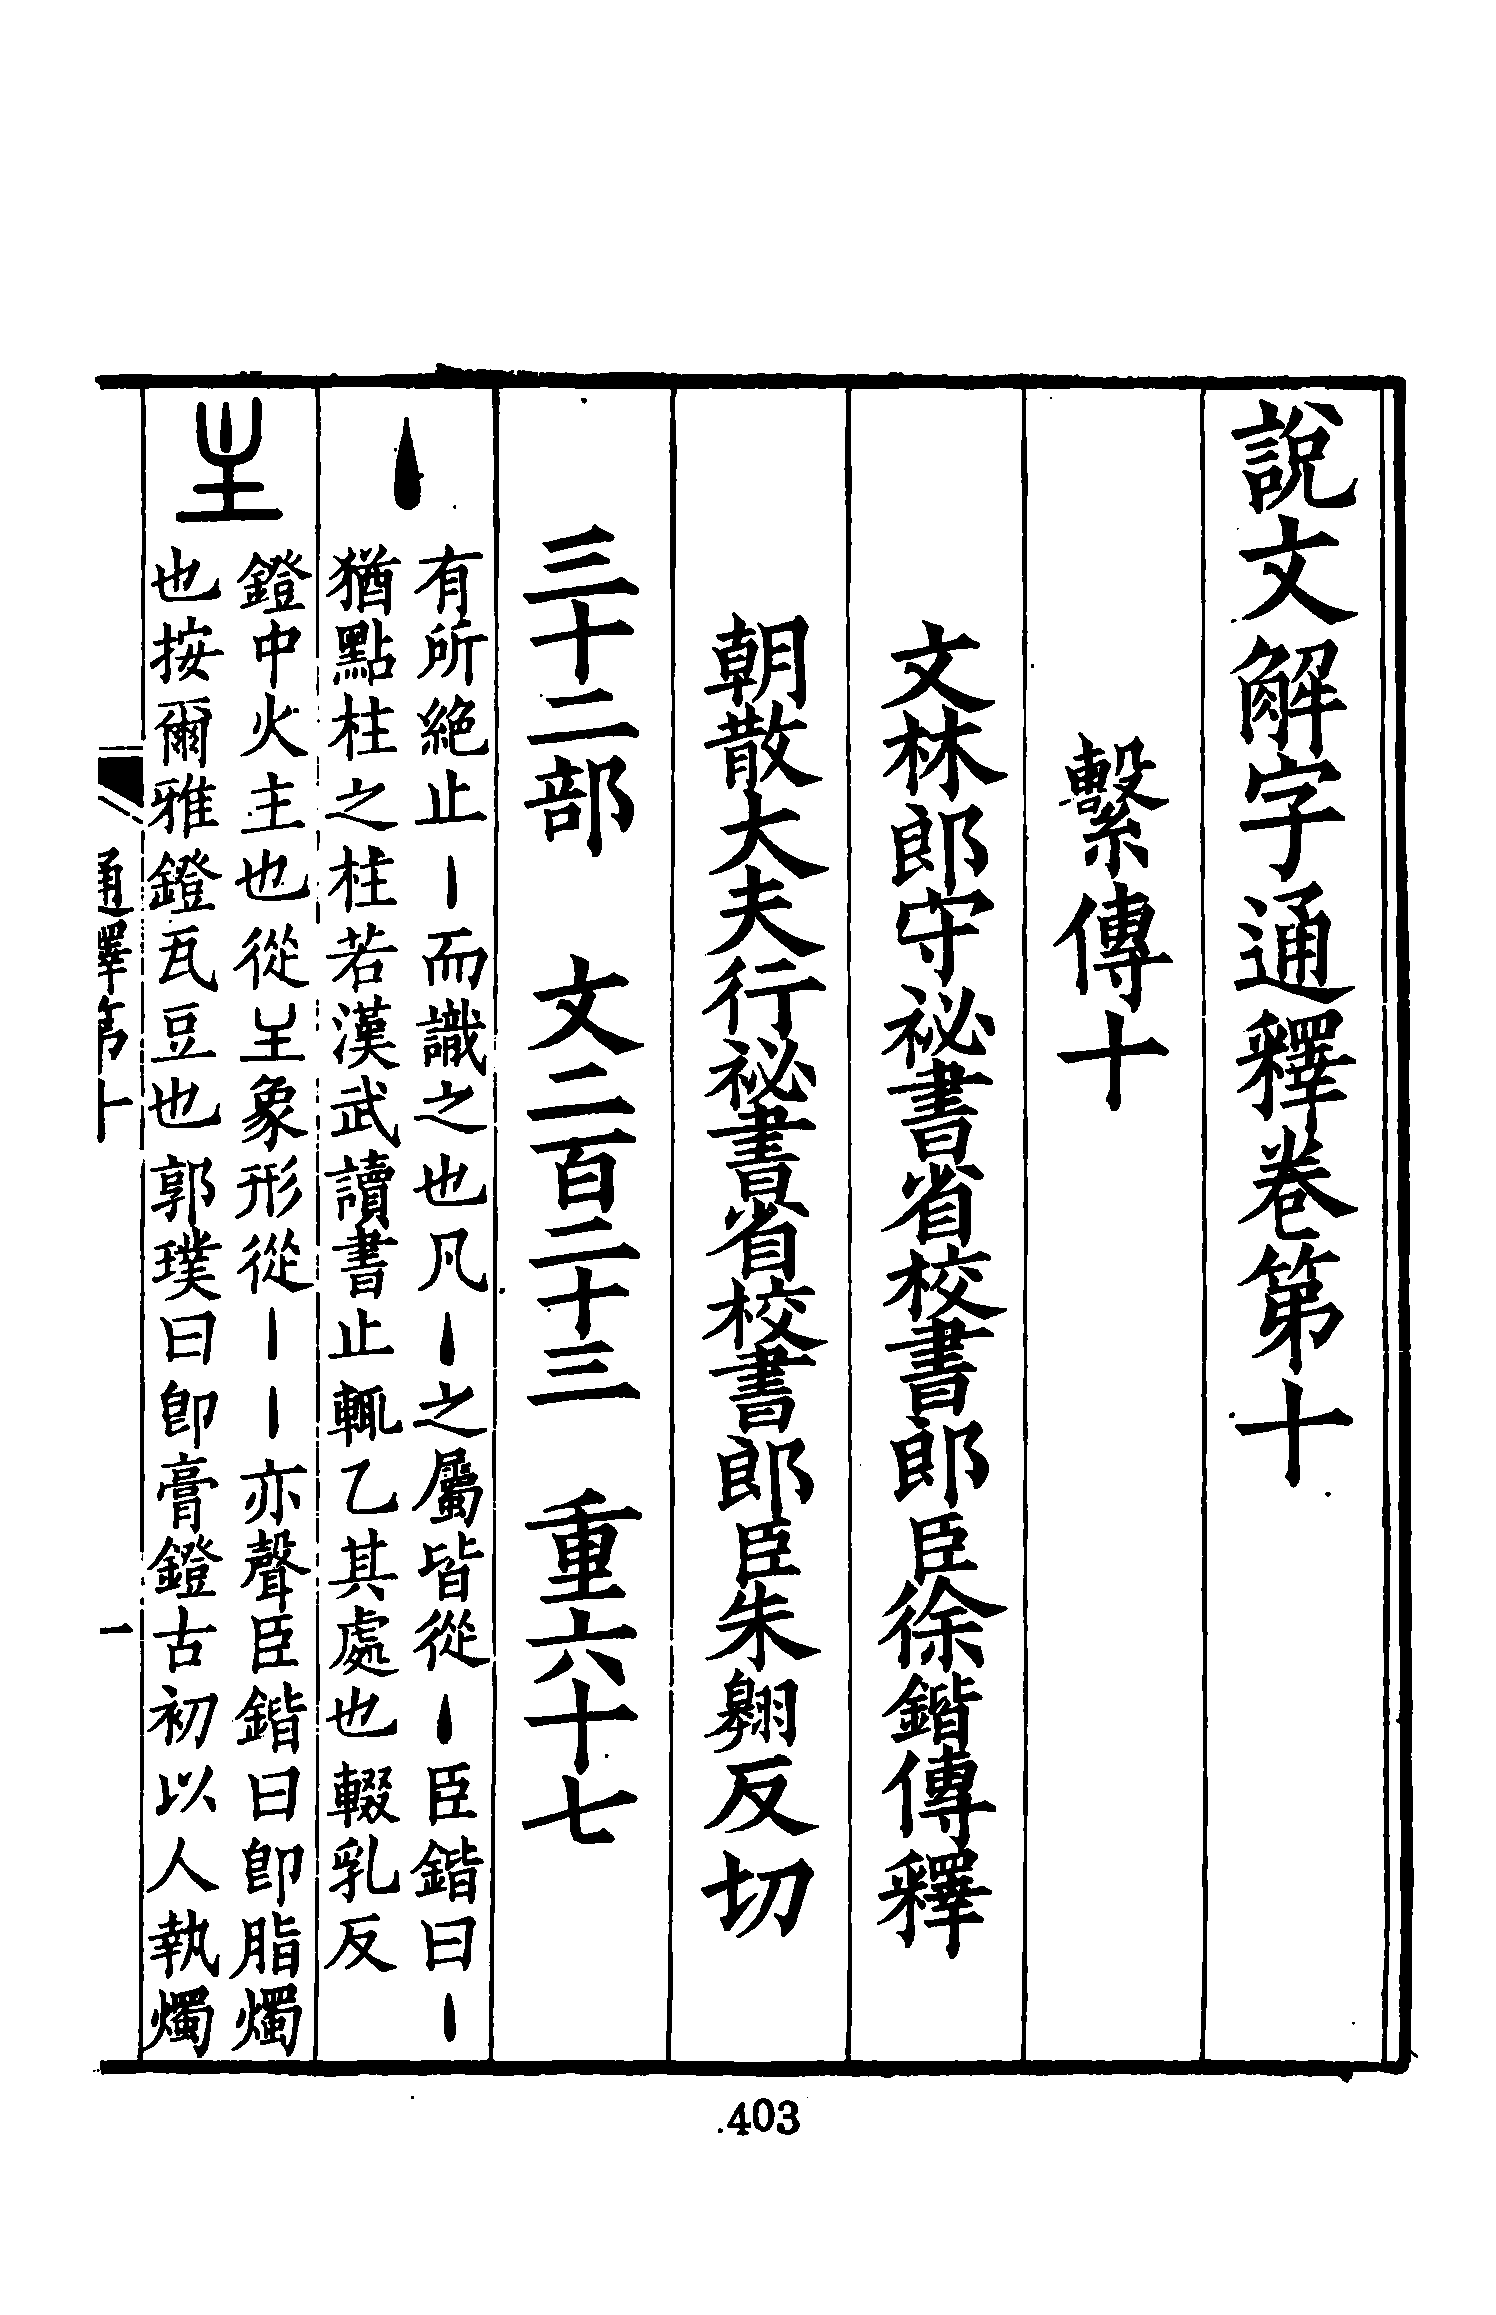 說文解字通釋卷第十
繫傳十
文林郎守祕書省校書郎臣徐鍇傳釋
朝散大夫行祕書省校書郎臣朱翱反切
三十二部　文二百二十三　重六十七
丶
有所絶止丶而識之也凡丶之屬皆從丶臣鍇曰丶
猶點柱之柱若漢武讀書止輒乙其處也輟乳反
主
鐙中火主也從㞷象形從丶丶亦聲臣鍇曰卽脂燭
也按爾雅鐙瓦豆也郭璞曰卽膏鐙古初以人執燭
通釋第十
一
403